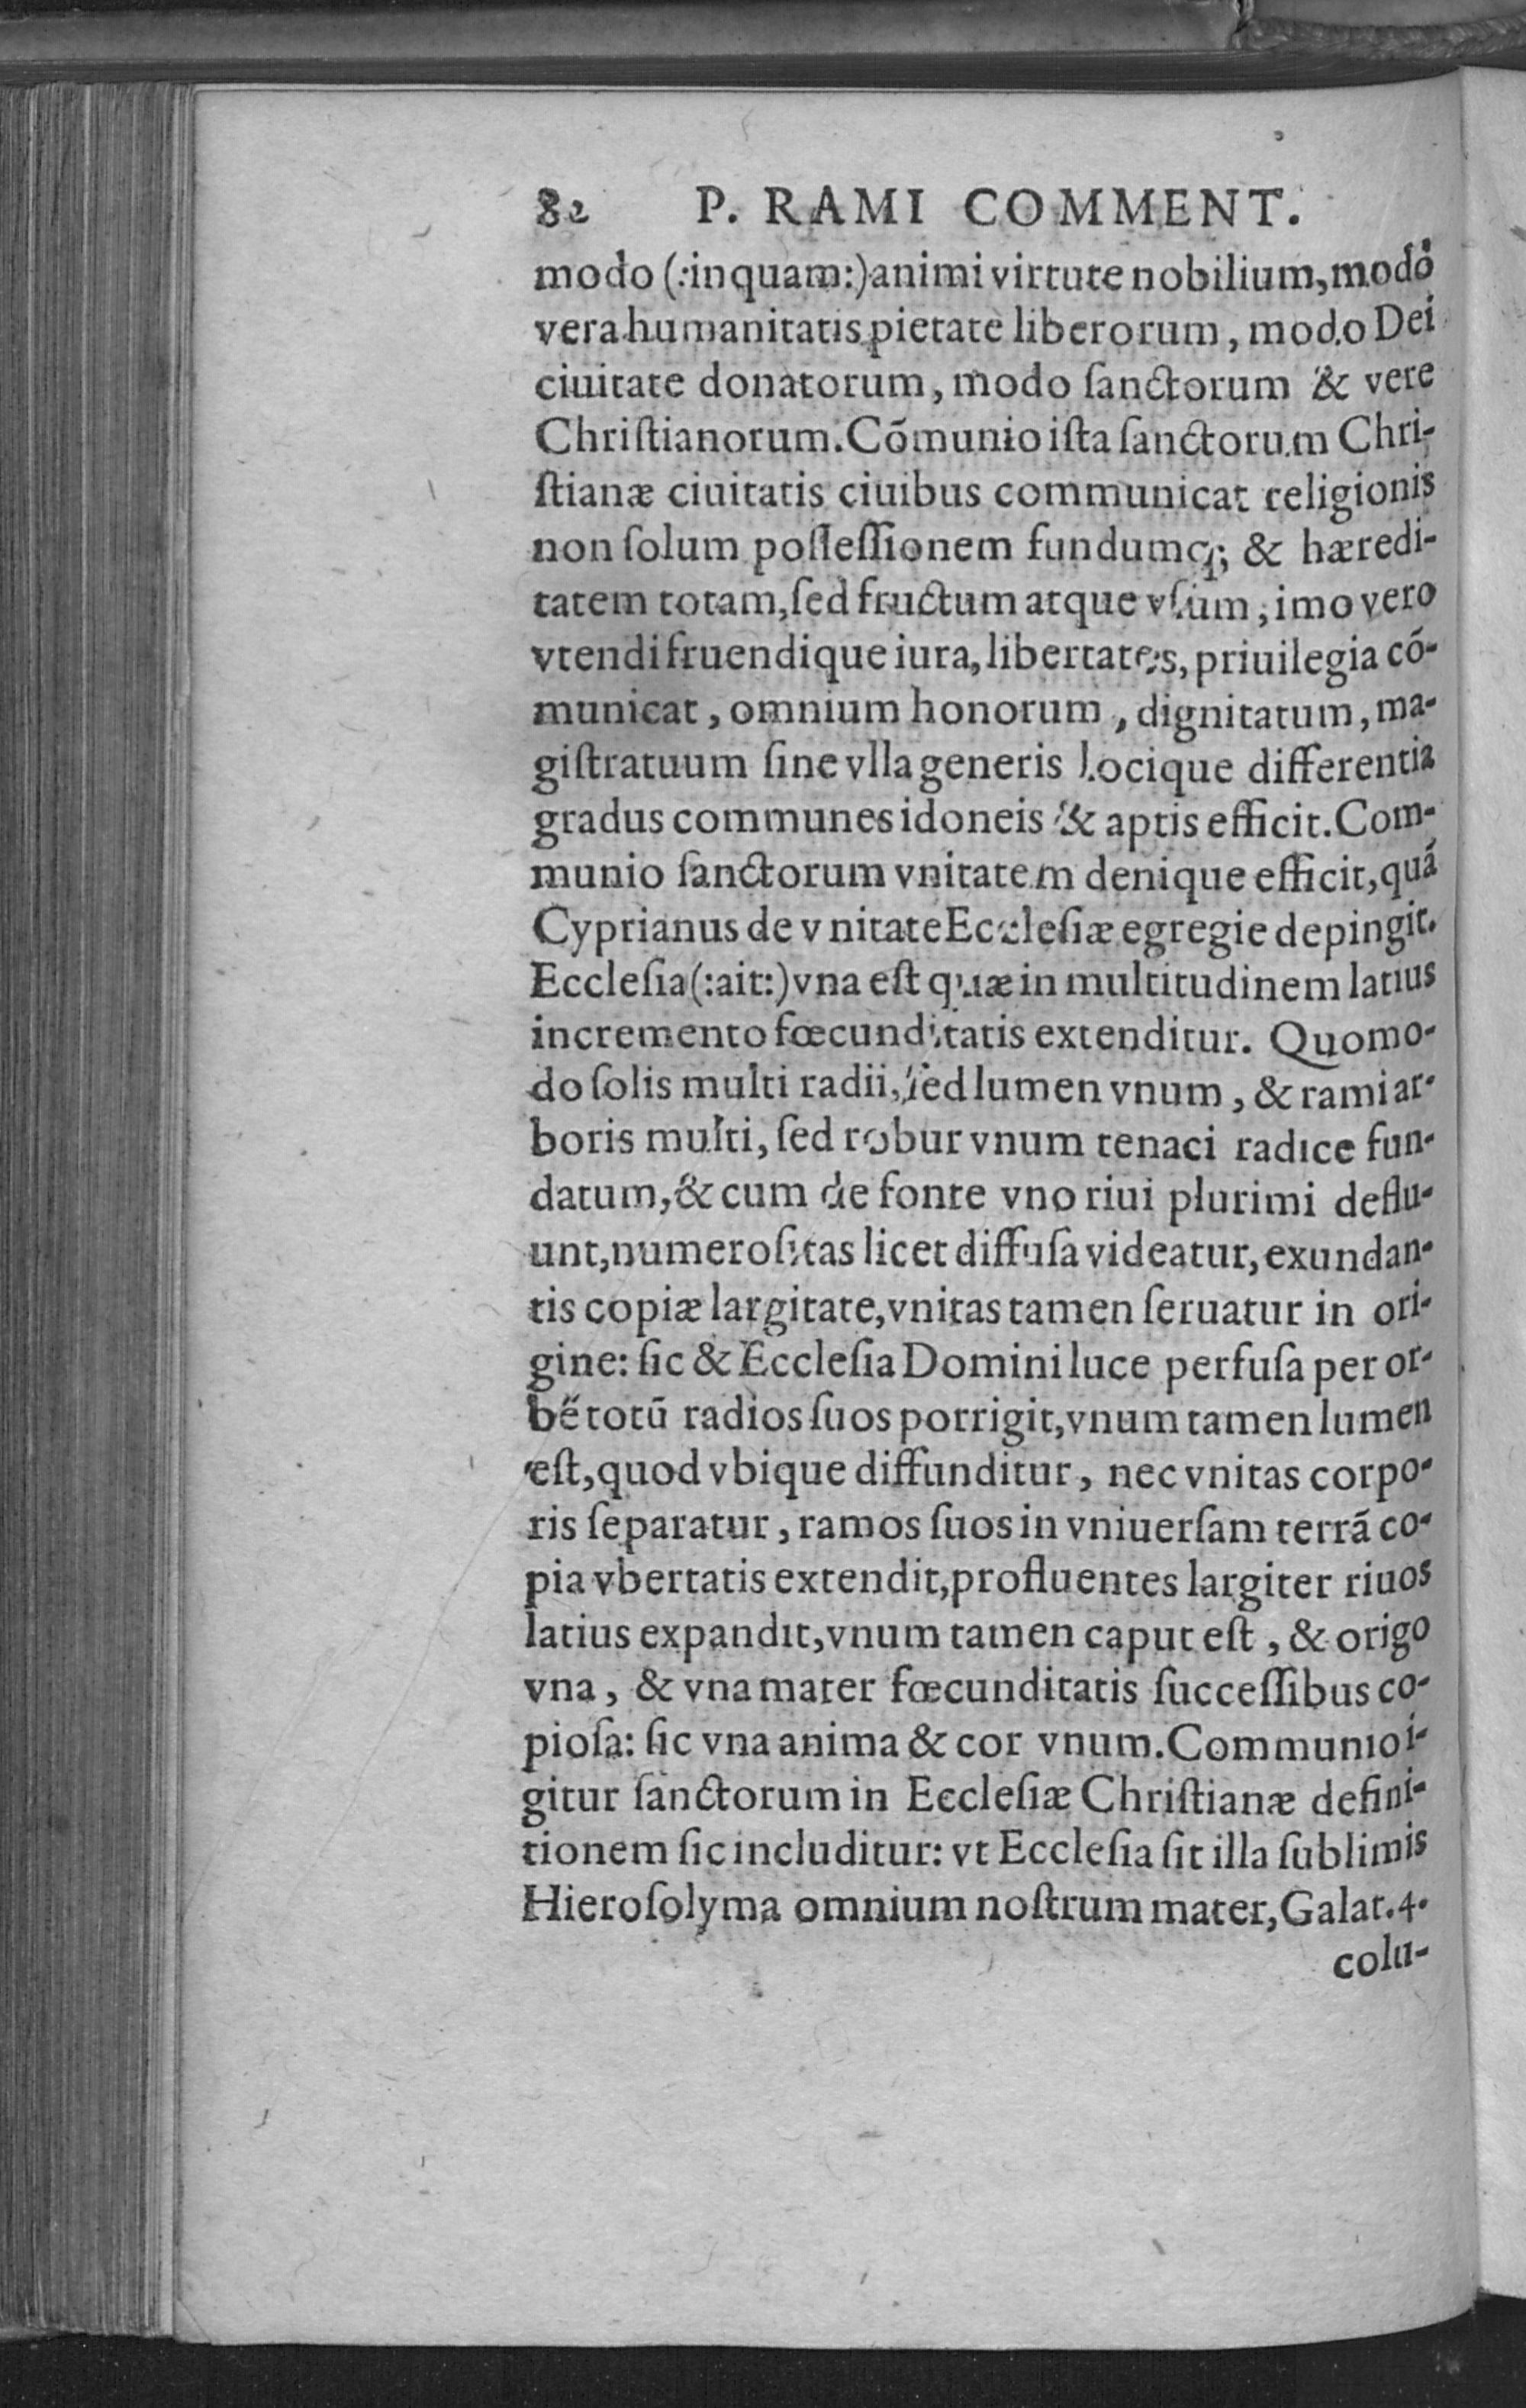 82 P. RAMI COMMENT.
modo (:inquam:) animi virtute nobilium, modo
vera humanitatis pietate liberorum, modo Dei
ciuitate donatorum, modo ſanctorum & vere
Chriſtianorum. Cõmunio iſta ſanctorum Chri-
ſtianæ ciuitatis ciuibus communicat religionis
non ſolum poſſeſſionem fundumq; & hæredi-
tatem totam, ſed fructum atque vſum, imo vero
vtendi fruendique iura, libertates, priuilegia cõ-
municat, omnium honorum, dignitatum, ma-
giſtratuum ſine vlla generis locique differentia
gradus communes idoneis & aptis efficit. Com-
munio ſanctorum vnitatem denique efficit, quã
Cyprianus de vnitate Eccleſiæ egregie depingit.
Eccleſia (:ait:) vna eſt quæ in multitudinem latius
incremento fœcunditatis extenditur. Quomo-
do ſolis multi radii, ſed lumen vnum, & rami ar-
boris multi, ſed robur vnum tenaci radice fun-
datum, & cum de fonte vno riui plurimi deflu-
unt, numeroſitas licet diffuſa videatur, exundan-
tis copiæ largitate, vnitas tamen ſeruatur in ori-
gine: ſic & Eccleſia Domini luce perfuſa per or-
bẽ totũ radios ſuos porrigit, vnum tamen lumen
eſt, quod vbique diffunditur, nec vnitas corpo-
ris ſeparatur, ramos ſuos in vniuerſam terrã co-
pia vbertatis extendit, profluentes largiter riuos
latius expandit, vnum tamen caput eſt, & origo
vna, & vna mater fœcunditatis ſucceſſibus co-
pioſa: ſic vna anima & cor vnum. Communio i-
gitur ſanctorum in Eccleſiæ Chriſtianæ defini-
tionem ſic includitur: vt Eccleſia ſit illa ſublimis
Hieroſolyma omnium noſtrum mater, Galat. 4.
colu-